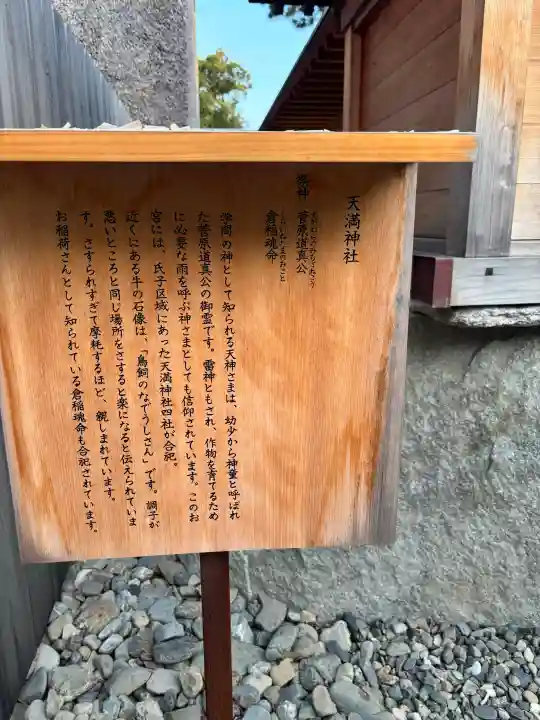 天満神社
祭神 菅原道真公
すがわらのみちざねこう
倉稲魂命
うかのみたまのみこと
学問の神として知られる天神さまは、幼少から神童と呼ばれ
た菅原道真公の御霊です。雷神ともされ、作物を育てるため
に必要な雨を呼ぶ神さまとしても信仰されています。このお
宮には、氏子区域にあった天満神社四社が合祀。
近くにある牛の石像は、「鳥飼のなでうしさん」です。調子が
悪いところと同じ場所をさすると楽になると伝えられていま
す。さすられすぎて摩耗するほど、親しまれています。
お稲荷さんとして知られている倉稲魂命も合祀されています。